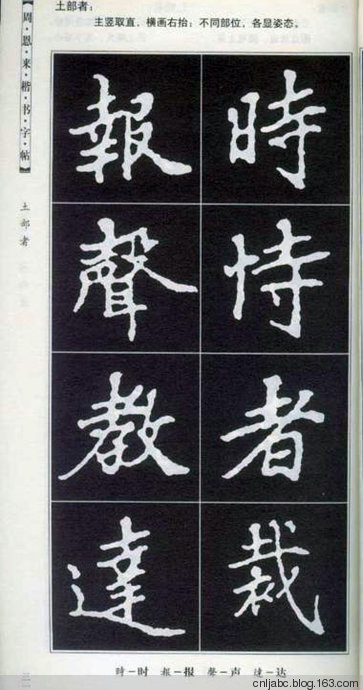 土部者：
主竖取直，横画右抬；不同部位，各显姿态。
【周·恩·来·楷·书·字·帖】
土部者
時 恃 者 裁
報 聲 教 達
時－时 報－报 聲－声 達－达
cnljabc.blog.163.com